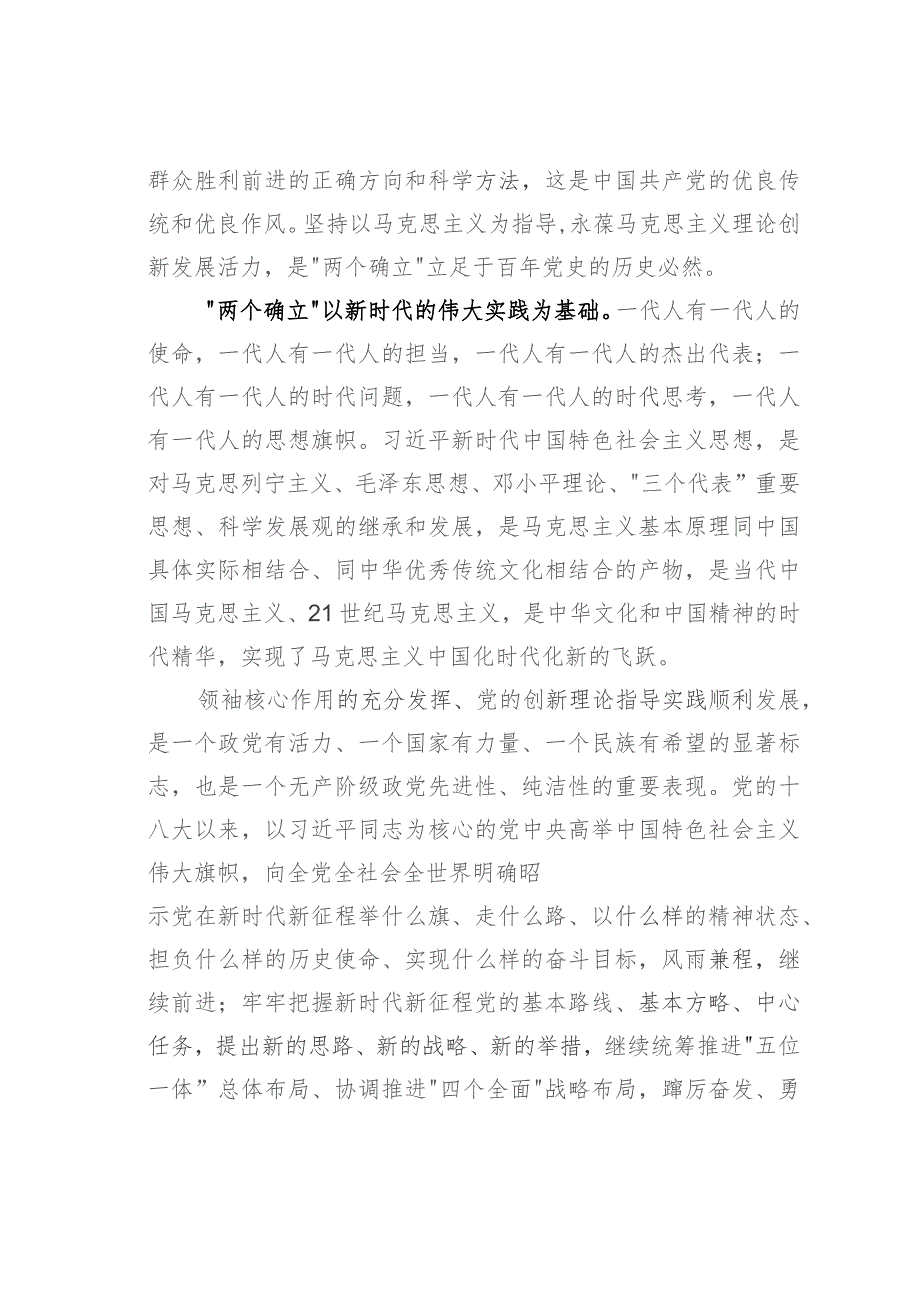 群众胜利前进的正确方向和科学方法，这是中国共产党的优良传
统和优良作风。坚持以马克思主义为指导,永葆马克思主义理论创
新发展活力，是"两个确立"立足于百年党史的历史必然。
"两个确立"以新时代的伟大实践为基础。一代人有一代人的
使命，一代人有一代人的担当，一代人有一代人的杰出代表；一
代人有一代人的时代问题，一代人有一代人的时代思考，一代人
有一代人的思想旗帜。习近平新时代中国特色社会主义思想，是
对马克思列宁主义、毛泽东思想、邓小平理论、"三个代表”重要
思想、科学发展观的继承和发展，是马克思主义基本原理同中国
具体实际相结合、同中华优秀传统文化相结合的产物，是当代中
国马克思主义、21世纪马克思主义，是中华文化和中国精神的时
代精华，实现了马克思主义中国化时代化新的飞跃。
领袖核心作用的充分发挥、党的创新理论指导实践顺利发展，
是一个政党有活力、一个国家有力量、一个民族有希望的显著标
志，也是一个无产阶级政党先进性、纯洁性的重要表现。党的十
八大以来，以习近平同志为核心的党中央高举中国特色社会主义
伟大旗帜，向全党全社会全世界明确昭
示党在新时代新征程举什么旗、走什么路、以什么样的精神状态、
担负什么样的历史使命、实现什么样的奋斗目标，风雨兼程，继
续前进；牢牢把握新时代新征程党的基本路线、基本方略、中心
任务，提出新的思路、新的战略、新的举措，继续统筹推进"五位
一体”总体布局、协调推进"四个全面"战略布局，踔厉奋发、勇